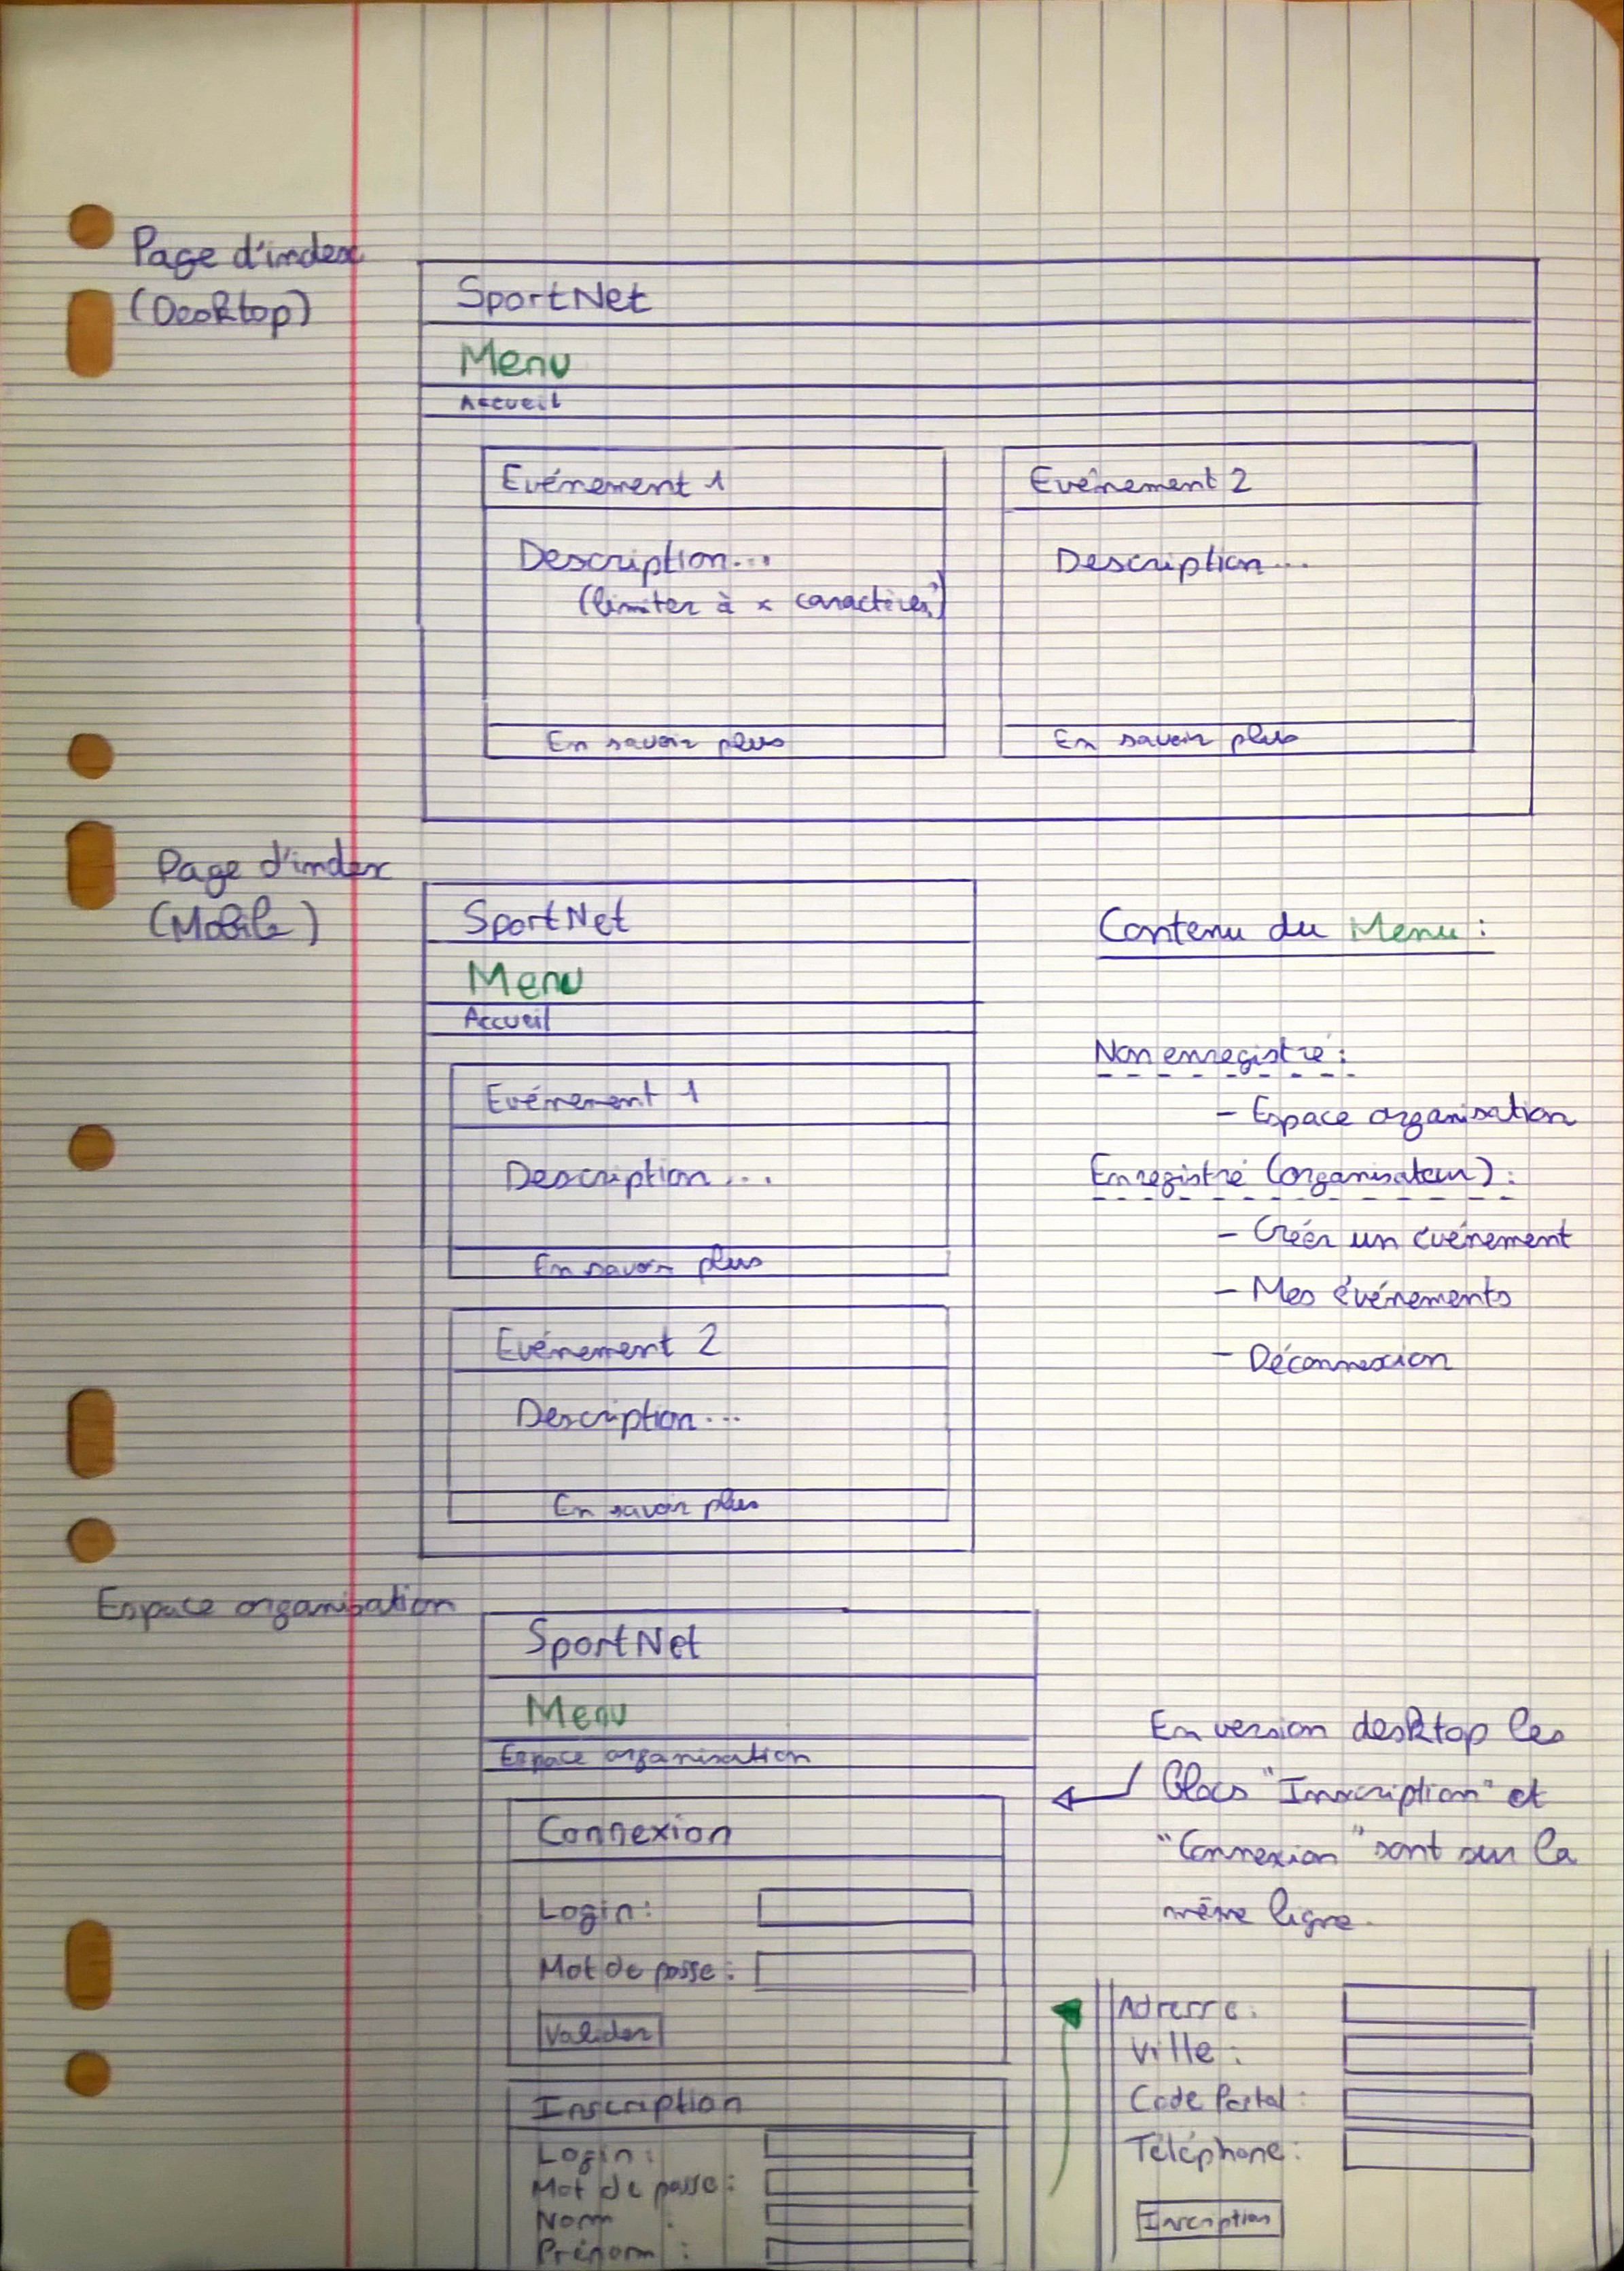 Page d'index
(Desktop)
SportNet
Menu
Accueil
Evénement 1
Description...
(limiter à x caractères)
En savoir plus
Evénement 2
Description...
En savoir plus
Page d'index
(Mobile)
SportNet
Menu
Accueil
Evénement 1
Description...
En savoir plus
Evénement 2
Description...
En savoir plus
Contenu du Menu :
Non enregistré :
- Espace organisation
Enregistré (organisateur) :
- Créer un événement
- Mes événements
- Déconnexion
Espace organisation
SportNet
Menu
Espace organisation
Connexion
Login :
Mot de passe :
Valider
Inscription
Login :
Mot de passe :
Nom :
Prénom :
En version desktop les
blocs "Inscription" et
"Connexion" sont sur la
même ligne.
Adresse :
Ville :
Code Postal :
Téléphone :
Inscription